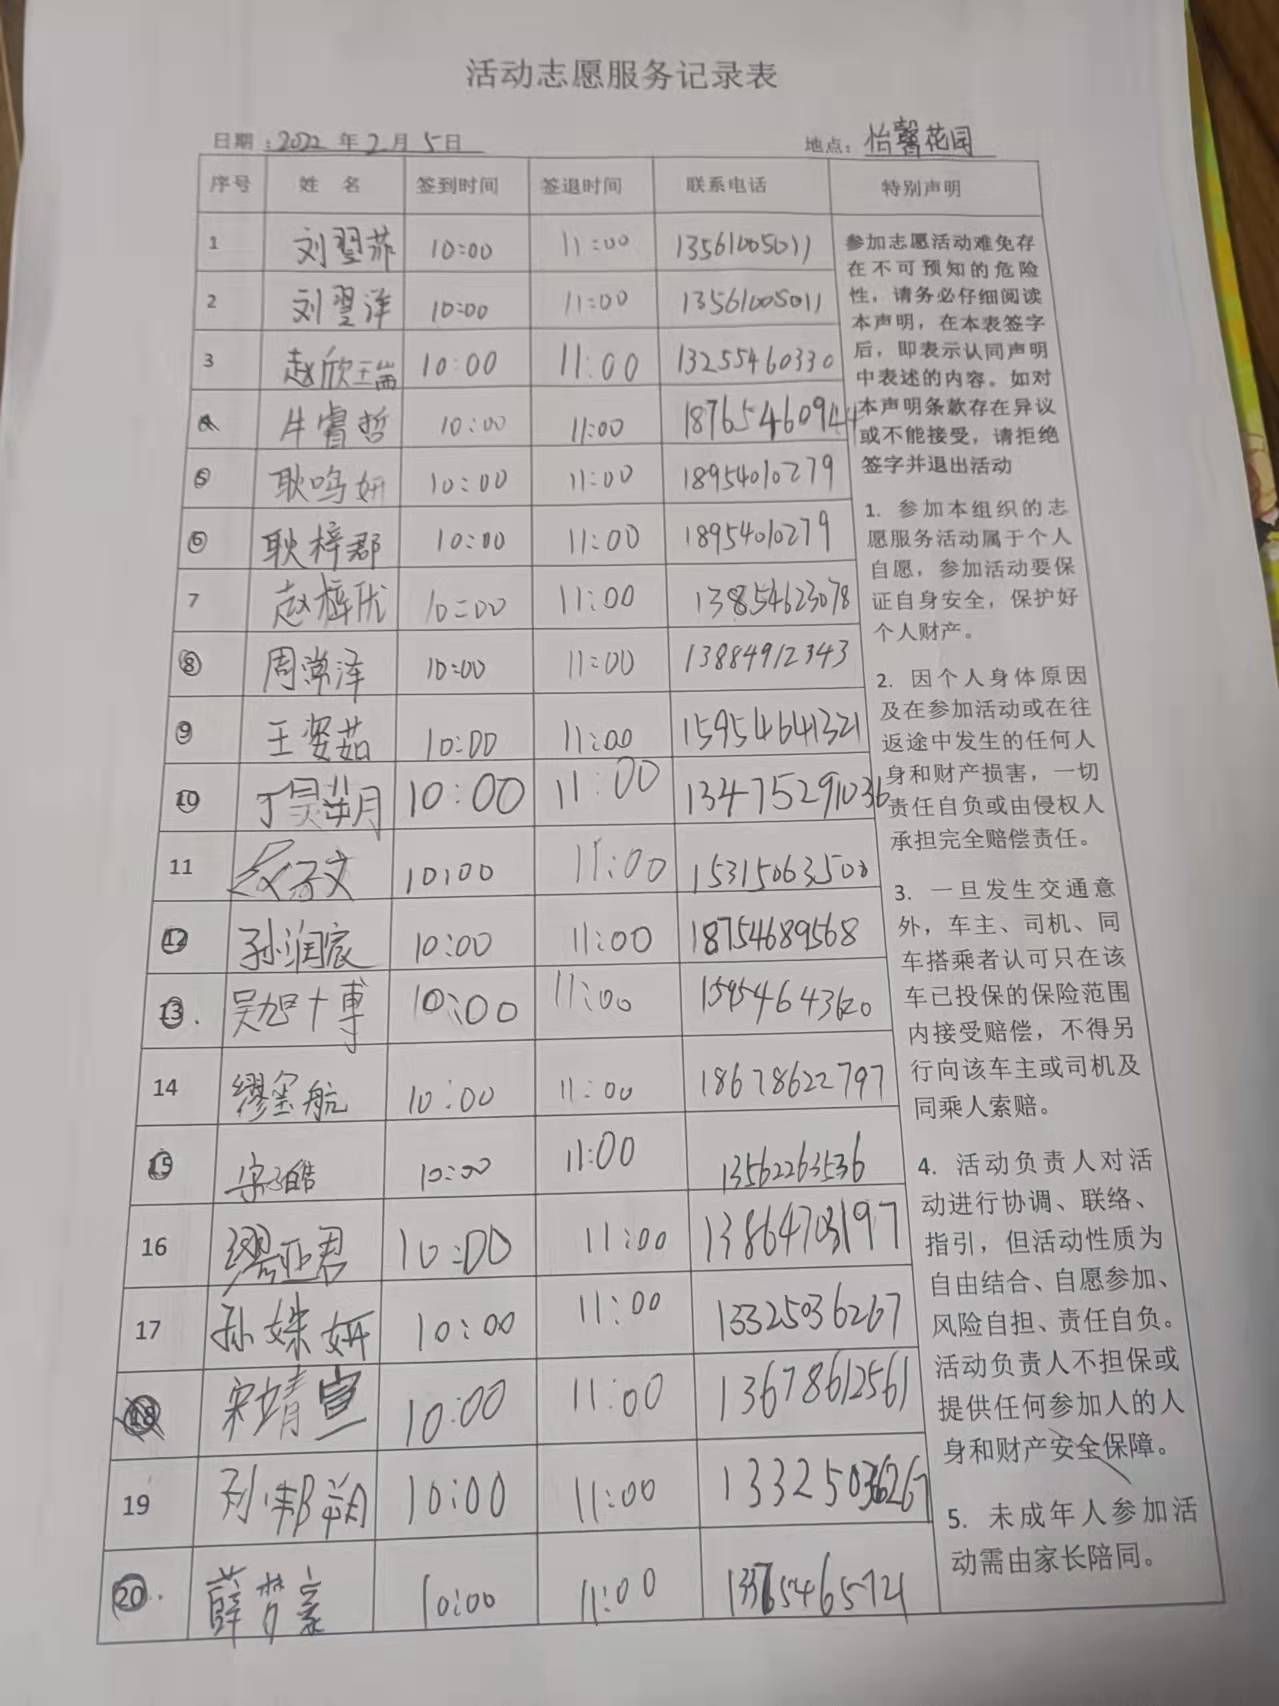 活动志愿服务记录表
日期：2022 年 2 月 5 日 地点：怡馨花园
序号 姓 名 签到时间 签退时间 联系电话 特别声明
1 刘翌菲 10:00 11:00 13561005011
2 刘翌洋 10:00 11:00 13561005011
3 赵欣瑞 10:00 11:00 13255460330
4 牛睿哲 10:00 11:00 18765460944
5 耿鸣妍 10:00 11:00 18954010279
6 耿梓郡 10:00 11:00 18954010279
7 赵梓优 10:00 11:00 13854623078
8 周常泽 10:00 11:00 13884912343
9 王姿茹 10:00 11:00 15954641321
10 10:00 11:00 13475291036
11 赵子文 10:00 11:00 15315063500
12 孙润宸 10:00 11:00 18754689568
13 吴旭十博 10:00 11:00
14 缪金航 10:00 11:00 18678622797
15 10:00 11:00 13562263536
16 缪亚君 10:00 11:00 13864703197
17 孙姝妍 10:00 11:00 13325036267
18 宋靖宣 10:00 11:00 13678612561
19 10:00 11:00 13325036267
20 薛梦豪 10:00 11:00
参加志愿活动难免存
在不可预知的危险
性，请务必仔细阅读
本声明，在本表签字
后，即表示认同声明
中表述的内容。如对
本声明条款存在异议
或不能接受，请拒绝
签字并退出活动
1. 参加本组织的志
愿服务活动属于个人
自愿，参加活动要保
证自身安全，保护好
个人财产。
2. 因个人身体原因
及在参加活动或在往
返途中发生的任何人
身和财产损害，一切
责任自负或由侵权人
承担完全赔偿责任。
3. 一旦发生交通意
外，车主、司机、同
车搭乘者认可只在该
车已投保的保险范围
内接受赔偿，不得另
行向该车主或司机及
同乘人索赔。
4. 活动负责人对活
动进行协调、联络、
指引，但活动性质为
自由结合、自愿参加、
风险自担、责任自负。
活动负责人不担保或
提供任何参加人的人
身和财产安全保障。
5. 未成年人参加活
动需由家长陪同。